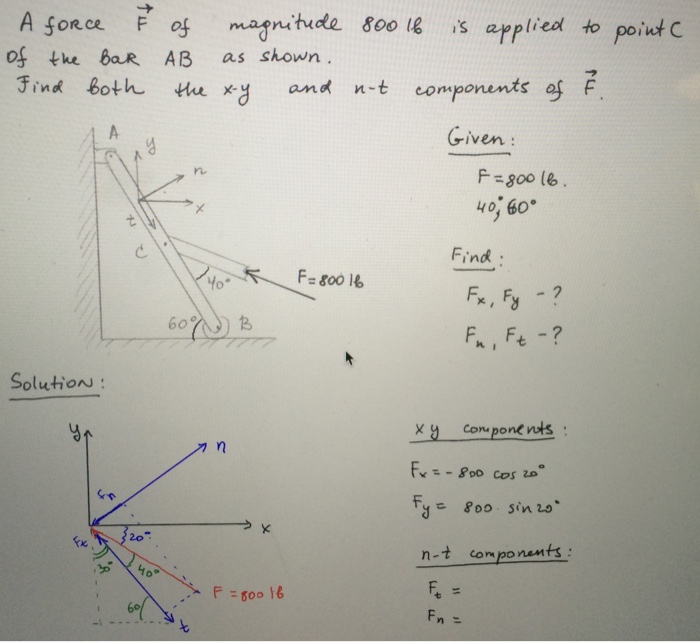 A force F of magnitude 800 lb is applied to point C
of the bar AB as shown.
Find both the x-y and n-t components of F.
Given:
F=800 lb.
40°; 60°
Find:
Fx, Fy -?
Fn, Ft -?
A
y
n
x
t
C
40°
F=800 lb
60°
B
Solution:
y
n
Fn
x
Fx
20°
30°
40°
60°
F=800 lb
t
xy components:
Fx = - 800 cos 20°
Fy = 800 · sin 20°
n-t components:
Ft =
Fn =